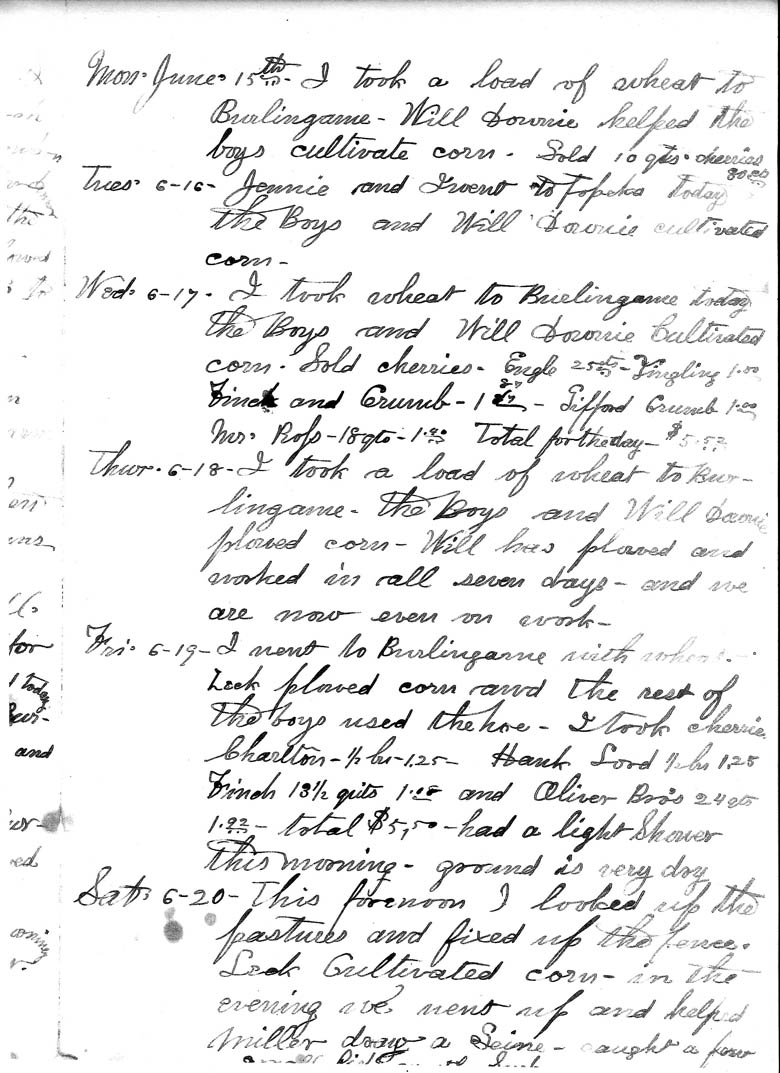 Mon. June. 15th - I took a load of wheat to
Burlingame - Will Downie helped the
boys cultivate corn - Sold 10 qts. cherries
80 cts
Tues. 6-16 - Jennie and I went to Topeka today
the Boys and Will Downie cultivated
corn -
Wed. 6-17 - I took wheat to Burlingame today
the Boys and Will Downie Cultivated
corn. Sold cherries - Engle 25cts - Yingling 1.00
Finch and Crumb - 1 - Gifford Crumb 1.00
Mr. Ross - 18 qts - 1. Total for the day - $5.52
Thur. 6-18 - I took a load of wheat to Bur-
lingame - the Boys and Will Downie
plowed corn - Will has plowed and
worked in all seven days - and we
are now even on work -
Fri. 6-19 - I went to Burlingame with wheat -
Leek plowed corn and the rest of
the boys used the hoe - I took cherries
Charlton - 1/2 bu - 1.25 - Hank Lord 1/2 bu 1.25
Finch 13 1/2 qts 1.08 and Oliver Bros 24 qts
1.92 - total $5,50 - had a light Shower
this morning - ground is very dry
Sat. 6-20 - This forenoon I looked up the
pastures and fixed up the fence.
Leek Cultivated corn - in the
evening we went up and helped
Miller draw a Seine - caught a few